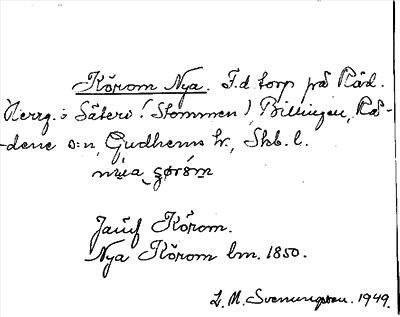 Körom Nya. F.d. torp på Råd.
Herrg. o Säteri (Stommen), Billingen, Rå-
-dene s:n, Gudhems hr., Skb. l.
Jämf Körom.
Nya Körom bm. 1850.
L. M. Svenungsson. 1949.